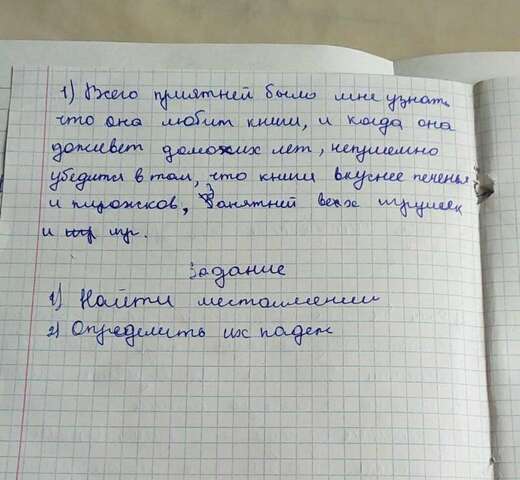 1) Всего приятней было мне узнать
что она любит книги, и когда она
доживет до моих лет, непременно
убедится в том, что книги вкуснее печенья
и пирожков, Занятней всех игрушек
и игр.
Задание
1) Найти местоимении
2) Определить их падеж